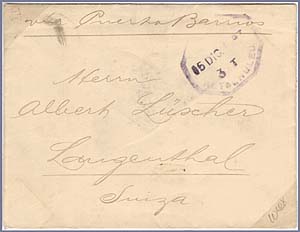 via Puerto Barrios
05 DIC
3 T
Herrn
Albert Lüscher
Langenthal
Suiza